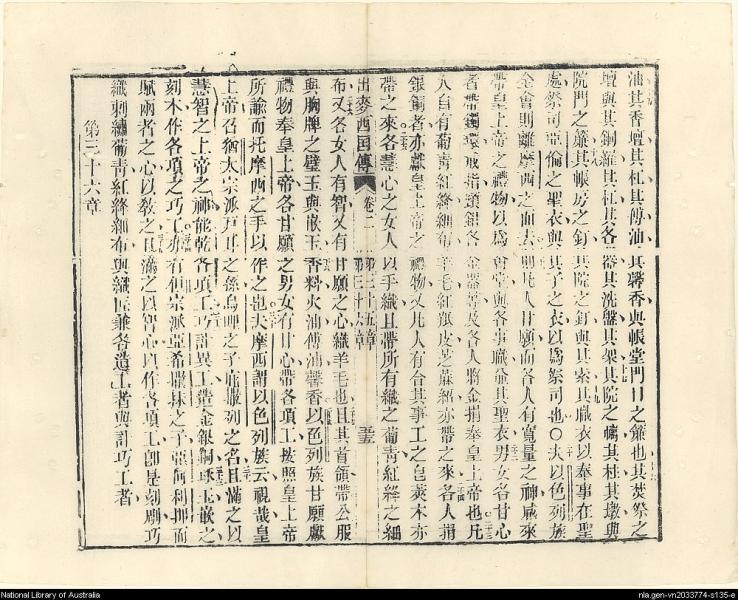 油其香壇與其杠其傅油其馨香與帳堂門口之簾也其焚祭之
壇與其銅羅其杠其各器其洗盤其架其院之幃其柱其墩與
院門之簾其帳房之釘其院之釘與其索其職衣以奉事在聖
處祭司亞倫之聖衣與其子之衣以為祭司也〇夫以色列族
全會則離摩西之面去 人甘願而各人有寬量之神感來
帶皇上帝之禮物以為會堂與各事職並其聖衣男女各甘心
者帶鐲環戒指頸鈕各金器 及各人將金捐奉皇上帝也凡
人自有葡青紅絳細布羊毛紅羝皮 亦帶之來各人捐
銀銅者亦獻皇上帝之禮物又凡人有合其事工之皂莢木亦
帶之來各慧心之女人以手織且帶所有織之葡青紅絳之細
出麥西國傳 卷二 第三十五章 第三十六章
布又各女人有智又有甘願之心織羊毛也且其首領帶公服
與胸牌之璧玉與嵌玉香料火油傅油馨香以色列族甘願獻
禮物奉皇上帝各甘願之男女有甘心帶各項工按照皇上帝
所諭而托摩西之手以作之也夫摩西謂以色列族云視哉皇
上帝召猶太宗派戸耳之孫烏 之子 列之名且滿之以
慧智之上帝之神能乾各項工巧計異工 金銀銅琢玉嵌之
刻木作各項之巧工亦有但宗派亞希 抹之子亞何利押而
賦兩者之心以教之且滿之以智心以作各項工卽是刻剛巧
織刺繡葡青紅絳細布與織匠兼各造工者與計巧工者
第三十六章